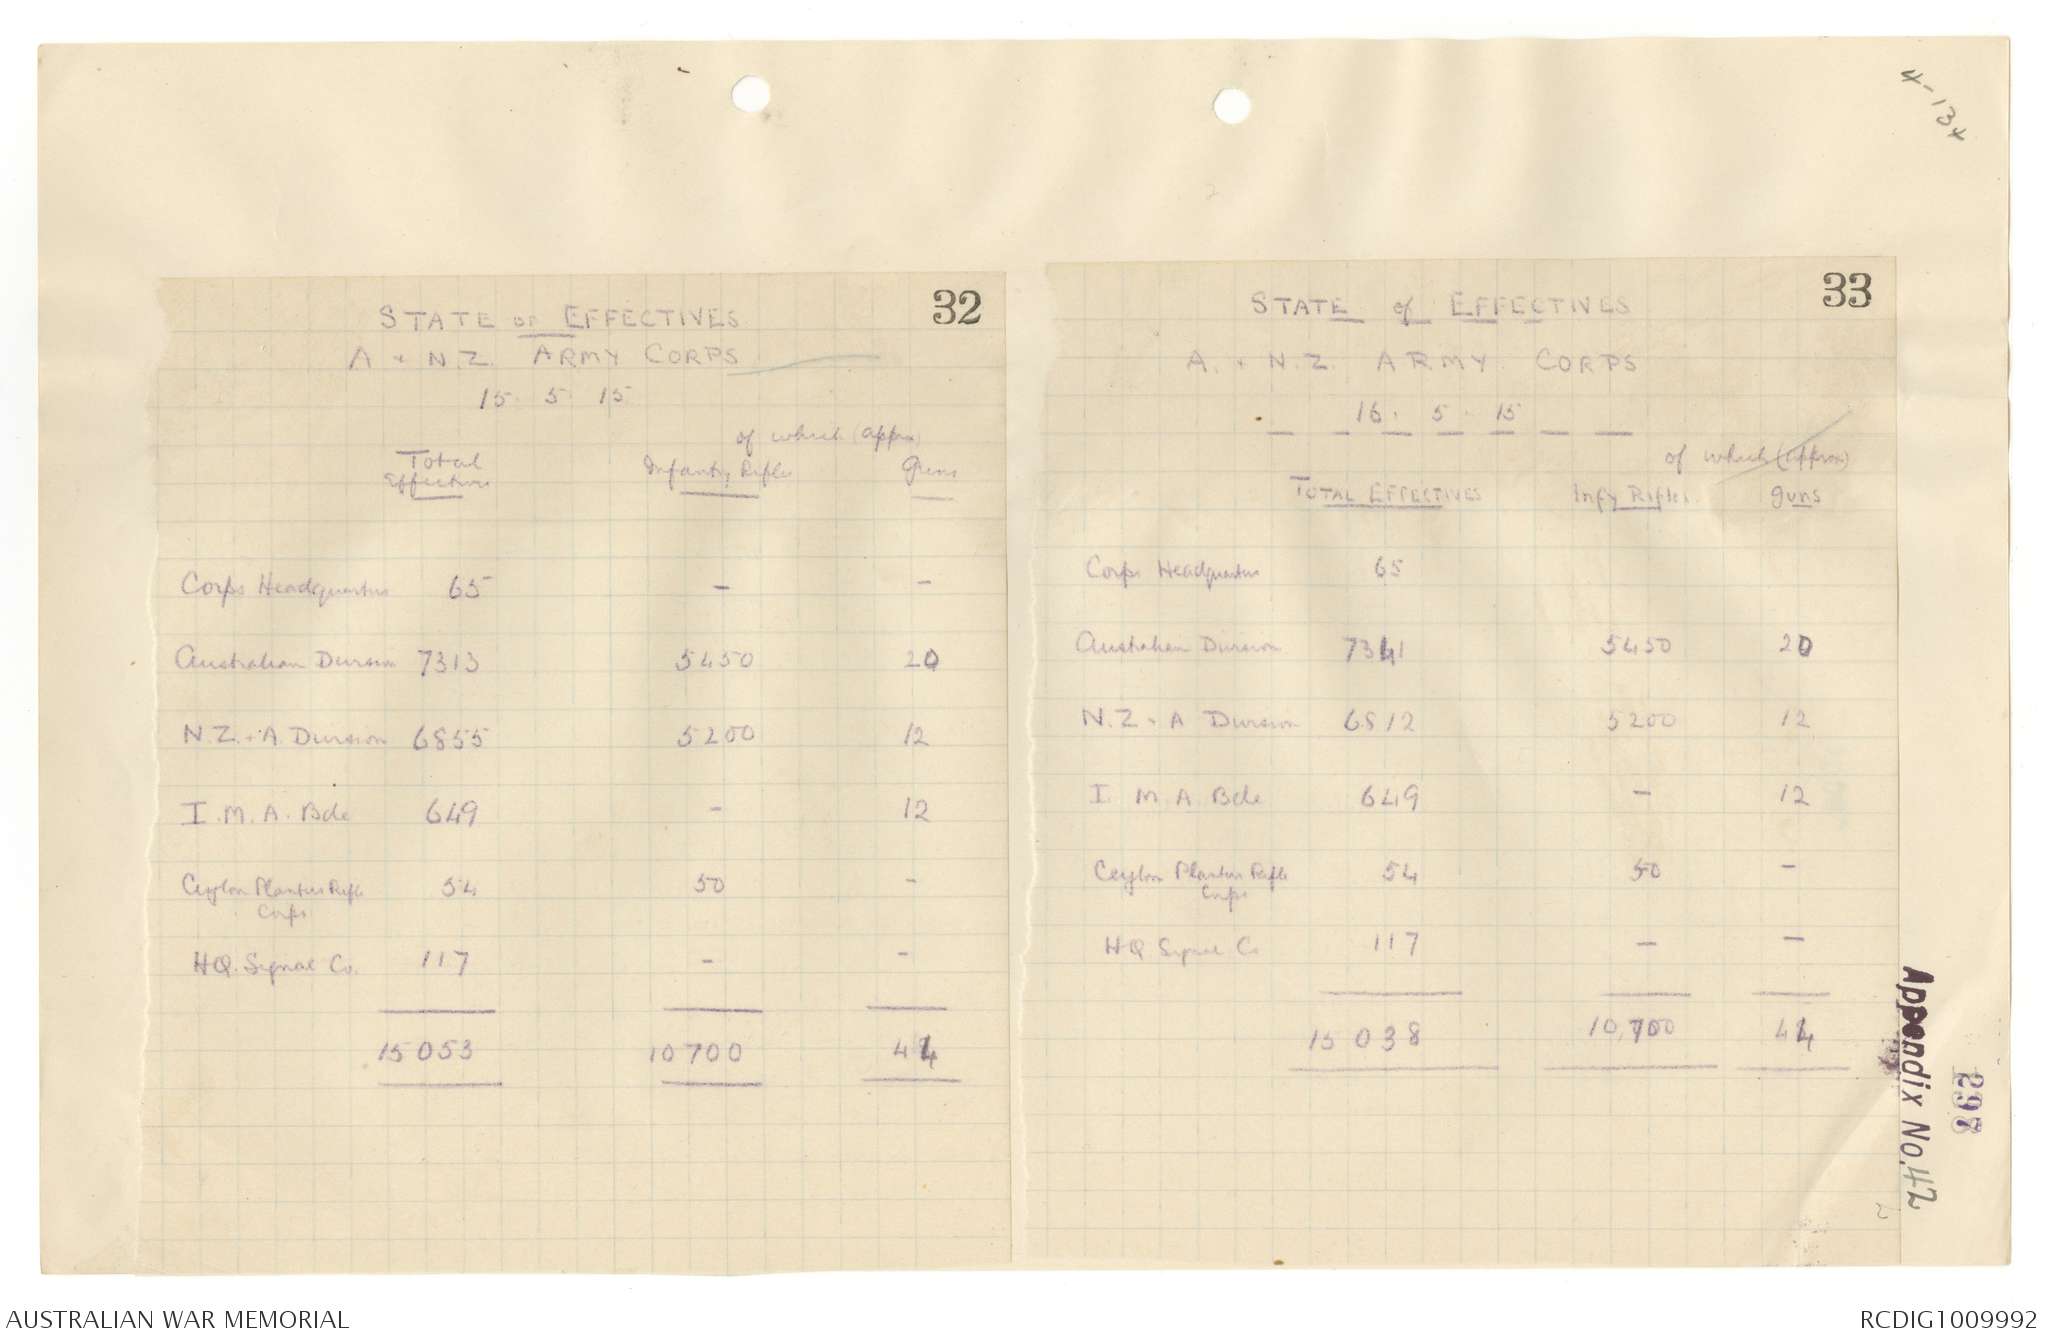 4-134
32
STATE OF EFFECTIVES
A + N.Z. ARMY CORPS
15. 5. 15
of which (approx)
Total Effectives Infantry Rifles Guns
Corps Headquarters 65 - -
Australian Division 7313 5450 20
N.Z. + A. Division 6855 5200 12
I.M.A. Bde 649 - 12
Ceylon Planters Rifle Corps 54 50 -
HQ. Signal Co. 117 - -
15053 10700 44
33
STATE of EFFECTIVES
A. + N.Z. ARMY CORPS
16. 5. 15
of which (approx)
TOTAL EFFECTIVES Infy Rifles guns
Corps Headquarters 65
Australian Division 7341 5450 20
N.Z + A Division 6812 5200 12
I. M. A. Bde 649 - 12
Ceylon Planters Rifle Corps 54 50 -
HQ Signal Co 117 - -
15038 10,700 44
Appendix No. 42
298
AUSTRALIAN WAR MEMORIAL
RCDIG1009992